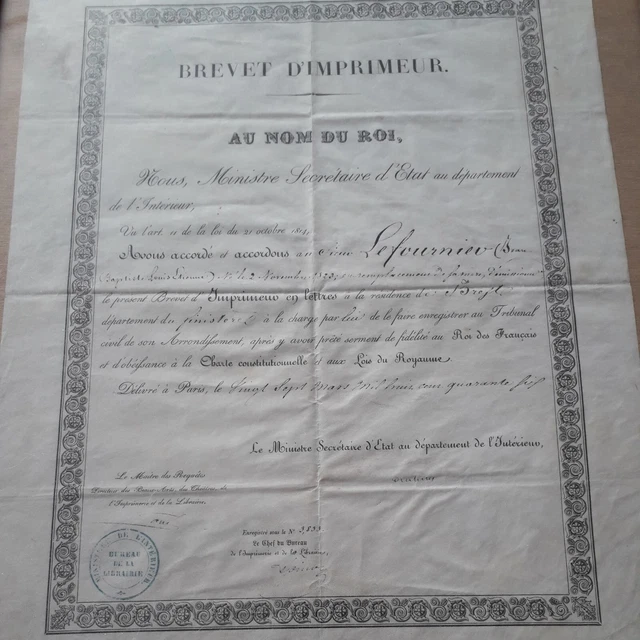 BREVET D'IMPRIMEUR.
AU NOM DU ROI,
Nous, Ministre Secrétaire d'Etat au département
de l'Intérieur,
Vu l'art. 11 de la loi du 21 octobre 1814,
Avons accordé et accordons au Sieur Lefournier (Jean
Baptiste Louis Etienne) Né le 2 Novembre en remplacement de démissionnaire
le présent Brevet d'Imprimeur en lettres à la résidence de Brest
département du finistère à la charge par lui de le faire enregistrer au Tribunal
civil de son Arrondissement, après y avoir prêté serment de fidélité au Roi des Français
et d'obéissance à la Charte constitutionnelle et aux Lois du Royaume.
Délivré à Paris, le Vingt Sept Mars mil huit cent quarante six
Le Ministre Secrétaire d'Etat au département de l'Intérieur,
Le Maitre des Requêtes
Directeur des Beaux-Arts, des Théâtres, de
l'Imprimerie et de la Librairie.
Enregistré sous le N°
Le Chef du Bureau
de l'Imprimerie et de la Librairie,
DE L'INTERIEUR
BUREAU
DE LA
LIBRAIRIE